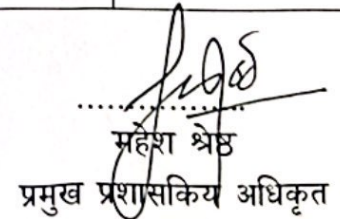 ....................
महेश श्रेष्ठ
प्रमुख प्रशासकिय अधिकृत